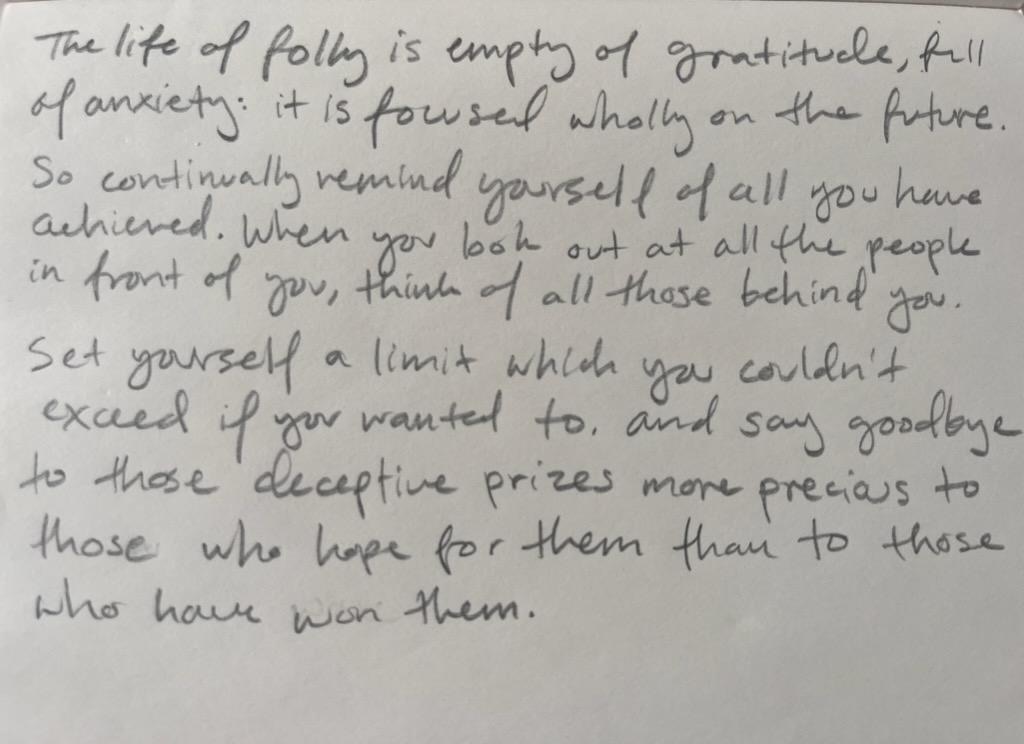 The life of folly is empty of gratitude, full
of anxiety: it is focused wholly on the future.
So continually remind yourself of all you have
achieved. When you look out at all the people
in front of you, think of all those behind you.
Set yourself a limit which you couldn't
exceed if you wanted to. and say goodbye
to those deceptive prizes more precious to
those who hope for them than to those
who have won them.